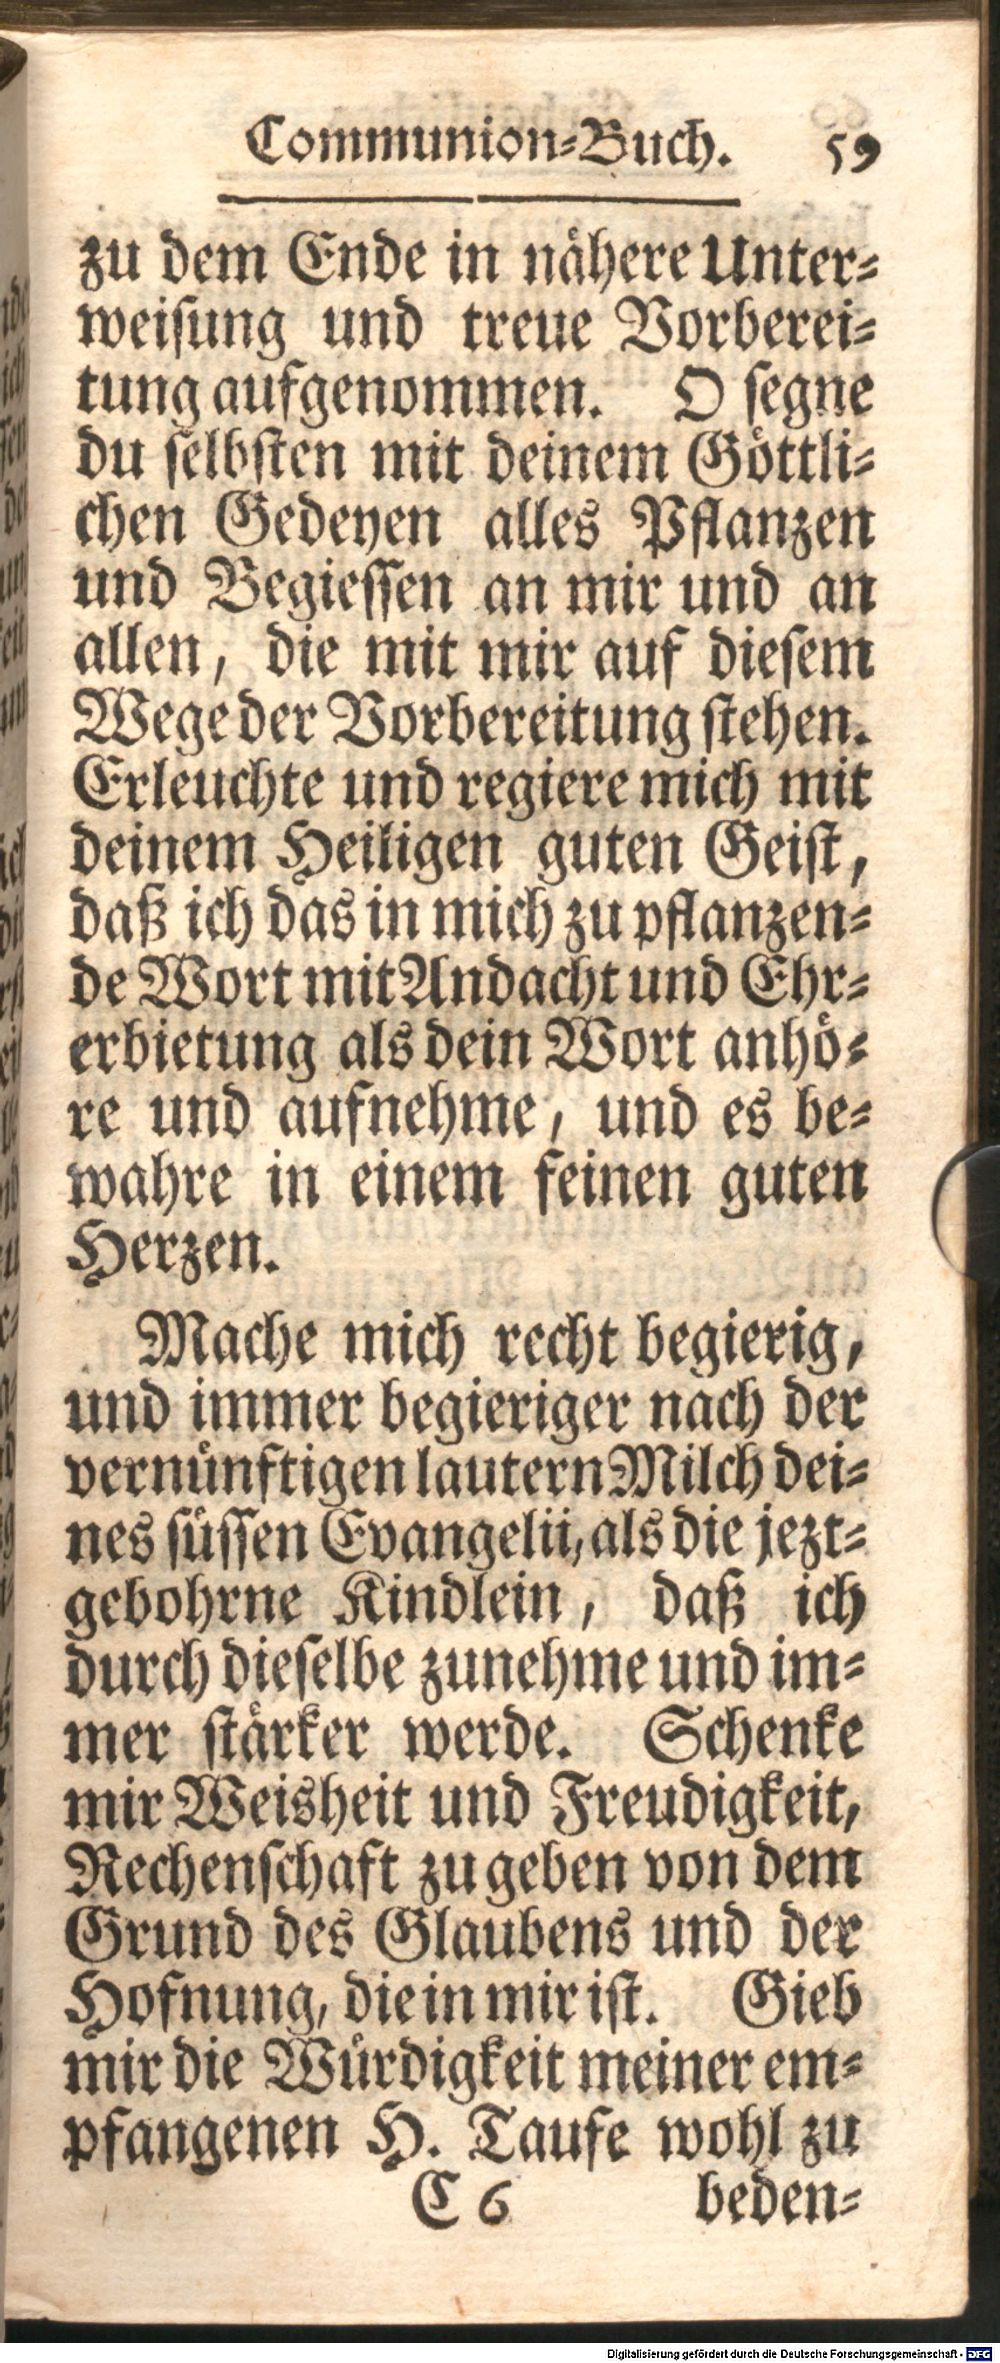 Communion-Buch. 59
zu dem Ende in nähere Unter-
weisung und treue Vorberei-
tung aufgenommen. O segne
du selbsten mit deinem Göttli-
chen Gedeyen alles Pflanzen
und Begiessen an mir und an
allen, die mit mir auf diesem
Wege der Vorbereitung stehen.
Erleuchte und regiere mich mit
deinem Heiligen guten Geist,
daß ich das in mich zu pflanzen-
de Wort mit Andacht und Ehr-
erbietung als dein Wort anhö-
re und aufnehme, und es be-
wahre in einem feinen guten
Herzen.
Mache mich recht begierig,
und immer begieriger nach der
vernünftigen lautern Milch dei-
nes süssen Evangelii, als die jezt-
gebohrne Kindlein, daß ich
durch dieselbe zunehme und im-
mer stärker werde. Schenke
mir Weisheit und Freudigkeit,
Rechenschaft zu geben von dem
Grund des Glaubens und der
Hofnung, die in mir ist. Gieb
mir die Würdigkeit meiner em-
pfangenen H. Taufe wohl zu
C 6 beden-
Digitalisierung gefördert durch die Deutsche Forschungsgemeinschaft - DFG